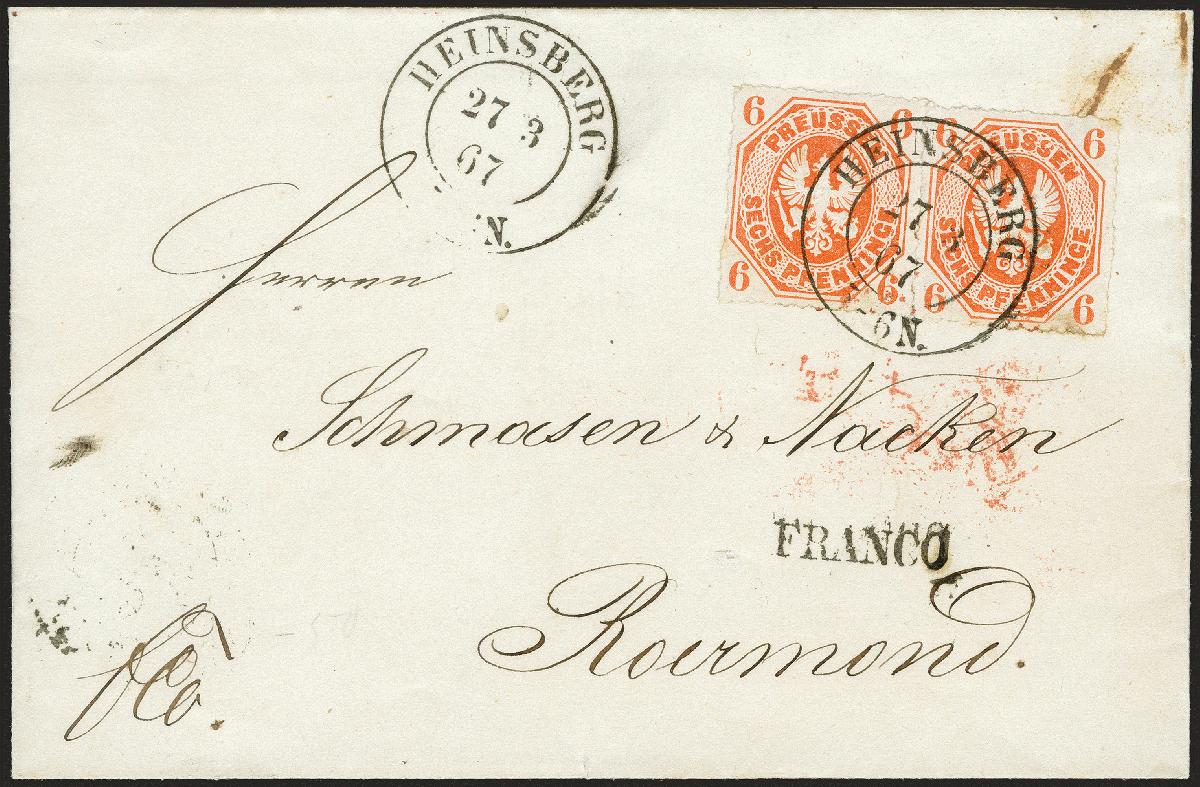 HEINSBERG
27 3
67
N.
6 PREUSSEN 6
SECHS PFENNINGE
6 6
6 PREUSSEN 6
SECHS PFENNINGE
6 6
HEINSBERG
27 3
67
6 N.
Herren
Schmasen & Nacken
FRANCO
Roermond.
fco.